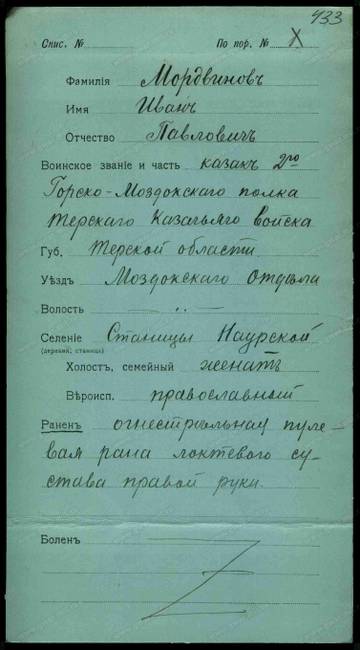 433
Спис. № По пор. № X
Фамилія Мордвиновъ
Имя Иванъ
Отчество Павловичъ
Воинское званіе и часть казакъ 2го
Горско-Моздокскаго полка
Терскаго Казачьяго Войска
Губ. Терской области
Уѣздъ Моздокскаго Отдѣла
Волость — ·· —
Селеніе Станицы Наурской
(деревня, станица)
Холостъ, семейный женатъ
Вѣроисп. православный
Раненъ огнестрѣльная пуле-
вая рана локтевого су-
става правой руки.
Боленъ